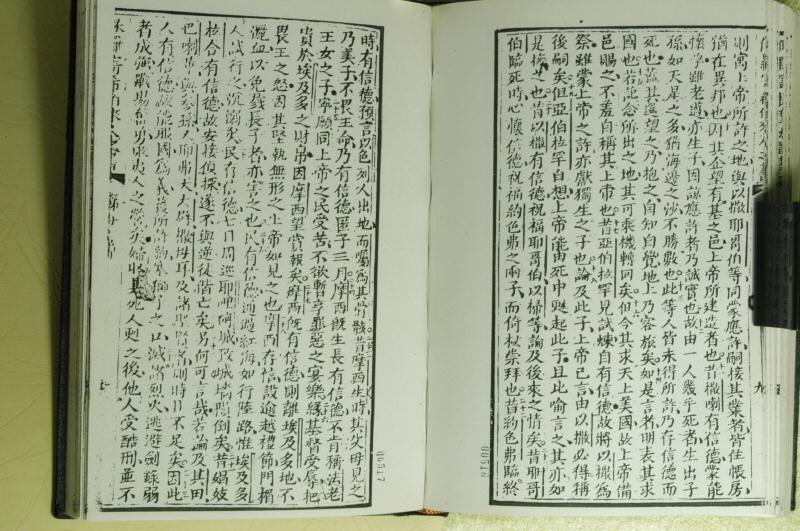 則寓上帝所許之地與以撒耶哥伯等同蒙應許嗣接其業者皆住帳房
猶在異邦也因其企望有基之邑上帝所建造者也昔撒喇有信德蒙能
懷孕雖老邁亦生子因諒應許者乃誠實也故由一人幾乎死者生出子
孫如天星之多猶海邊之沙不勝數也此等人皆未得所許乃存信德而
死也蓋其遙望之乃抱之自知自覺地上乃容旅矣如是言者明表其求
國也若記念所出之地其可乘機轉回矣但今其求天上美國故上帝備
邑賜之不羞自稱其上帝也昔亞伯拉罕見試煉自有信德故將以撒為
祭雖蒙上帝之許亦獻獨生之子也論及此子上帝已言由以撒必得稱
後嗣矣但亞伯拉罕自想上帝能由死中甦起此子且比喻言之其亦如
是接之也昔以撒有信德祝福耶哥伯以掃等論及後來之情矣昔耶哥
伯臨死時心懷信德祝福約色弗之兩子而倚杖崇拜也昔約色弗臨終
九
時有信德預言以色列人出地而囑為其骨骸昔摩西生時其父母見之
乃美子不畏王命乃有信德匿子三月摩西旣生長有信德不肯稱法老
王女之子寧願同上帝之民受苦不欲暫享罪惡之宴樂緣基督受辱把
貴於埃及多之財帛因摩西望賞報矣摩西旣有信德則離埃及多地不
畏王之怒因其堅執無形之上帝如見之也摩西存信設逾越禮節門楣
灑血以免戮長子者亦害之也民有信德通過紅海如行陸路惟埃及多
人試行之沉溺矣民存信德七日周巡耶哩哥城致城墻隕倒矣昔娼妓
拉合有信德故安接偵探遂不與逆徒偕亡矣另何可言哉若論及其田
巴喇參與參孫又耶弗大大辟撒母耳及諸聖人者則時日不足矣因此
人有信德故能服國為義獲所許約塞獅子之口滅諸烈火逃避劍鋒弱
者成強戰場奮勇敗夷人之營矣婦收其死人甦之後他人受酷刑並不
00517
00516